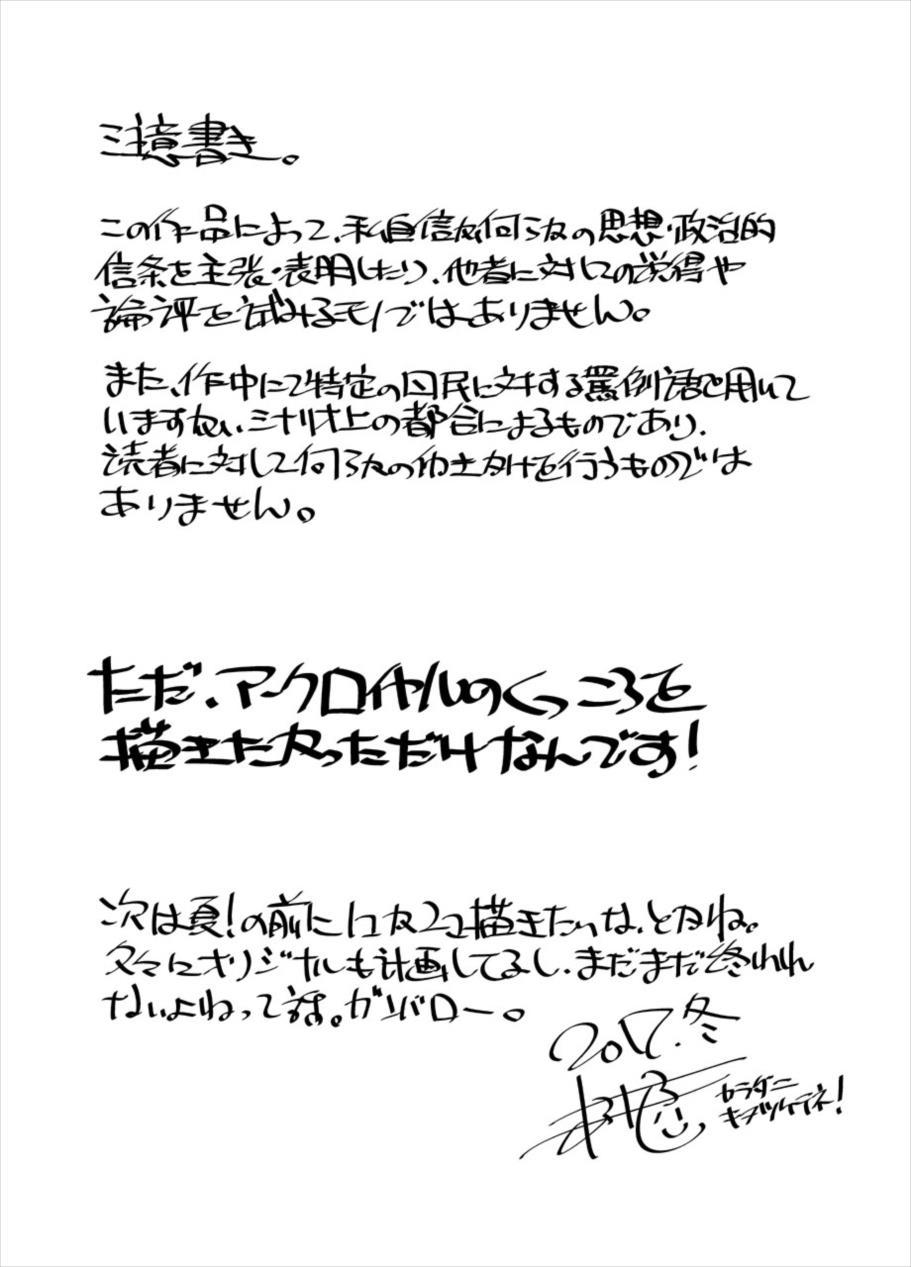 注意書き。
この作品によって、私自信が何らかの思想・政治的
信条を主張・表明したり、他者に対しての説得や
論評を試みるモノではありません。
また、作中にて特定の国民に対する罵倒語を用いて
いますが、シナリオ上の都合によるものであり、
読者に対して何らかの働きかけを行うものでは
ありません。
ただ、アークロイヤルのくっころを
描きたかっただけなんです!
次は夏!の前に1コか2コ描きたいな、とかね。
久々にオリジナルも計画してるし、まだまだ終われん
ないよねって話。ガンバロー。
2017.冬
カラダニ
キヲツケテネ!